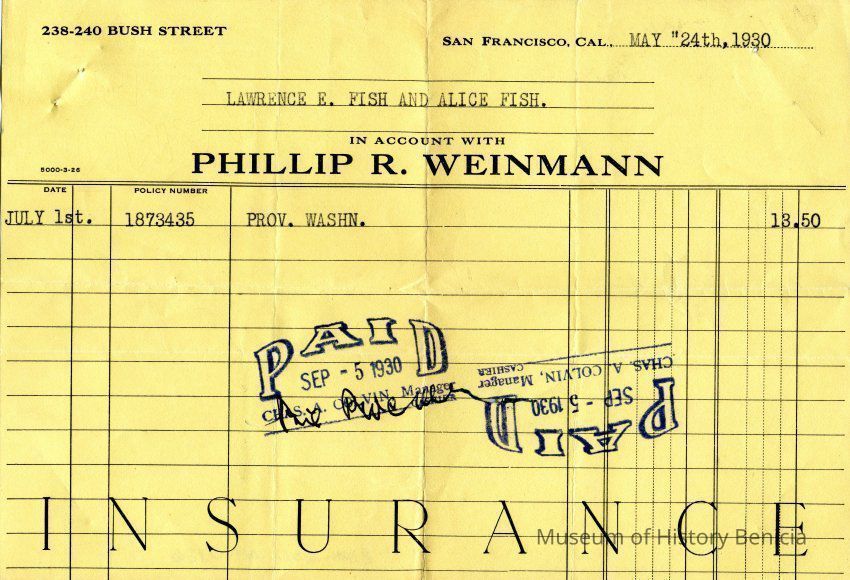 238-240 BUSH STREET
SAN FRANCISCO, CAL., MAY "24th, 1930
LAWRENCE E. FISH AND ALICE FISH.
IN ACCOUNT WITH
PHILLIP R. WEINMANN
5000-3-26
DATE POLICY NUMBER
JULY 1st. 1873435 PROV. WASHN. 13.50
PAID
SEP - 5 1930
CHAS. A. COLVIN, Manager
CASHIER
PAID
SEP - 5 1930
CHAS. A. COLVIN, Manager
CASHIER
INSURANCE
Museum of History Benicia